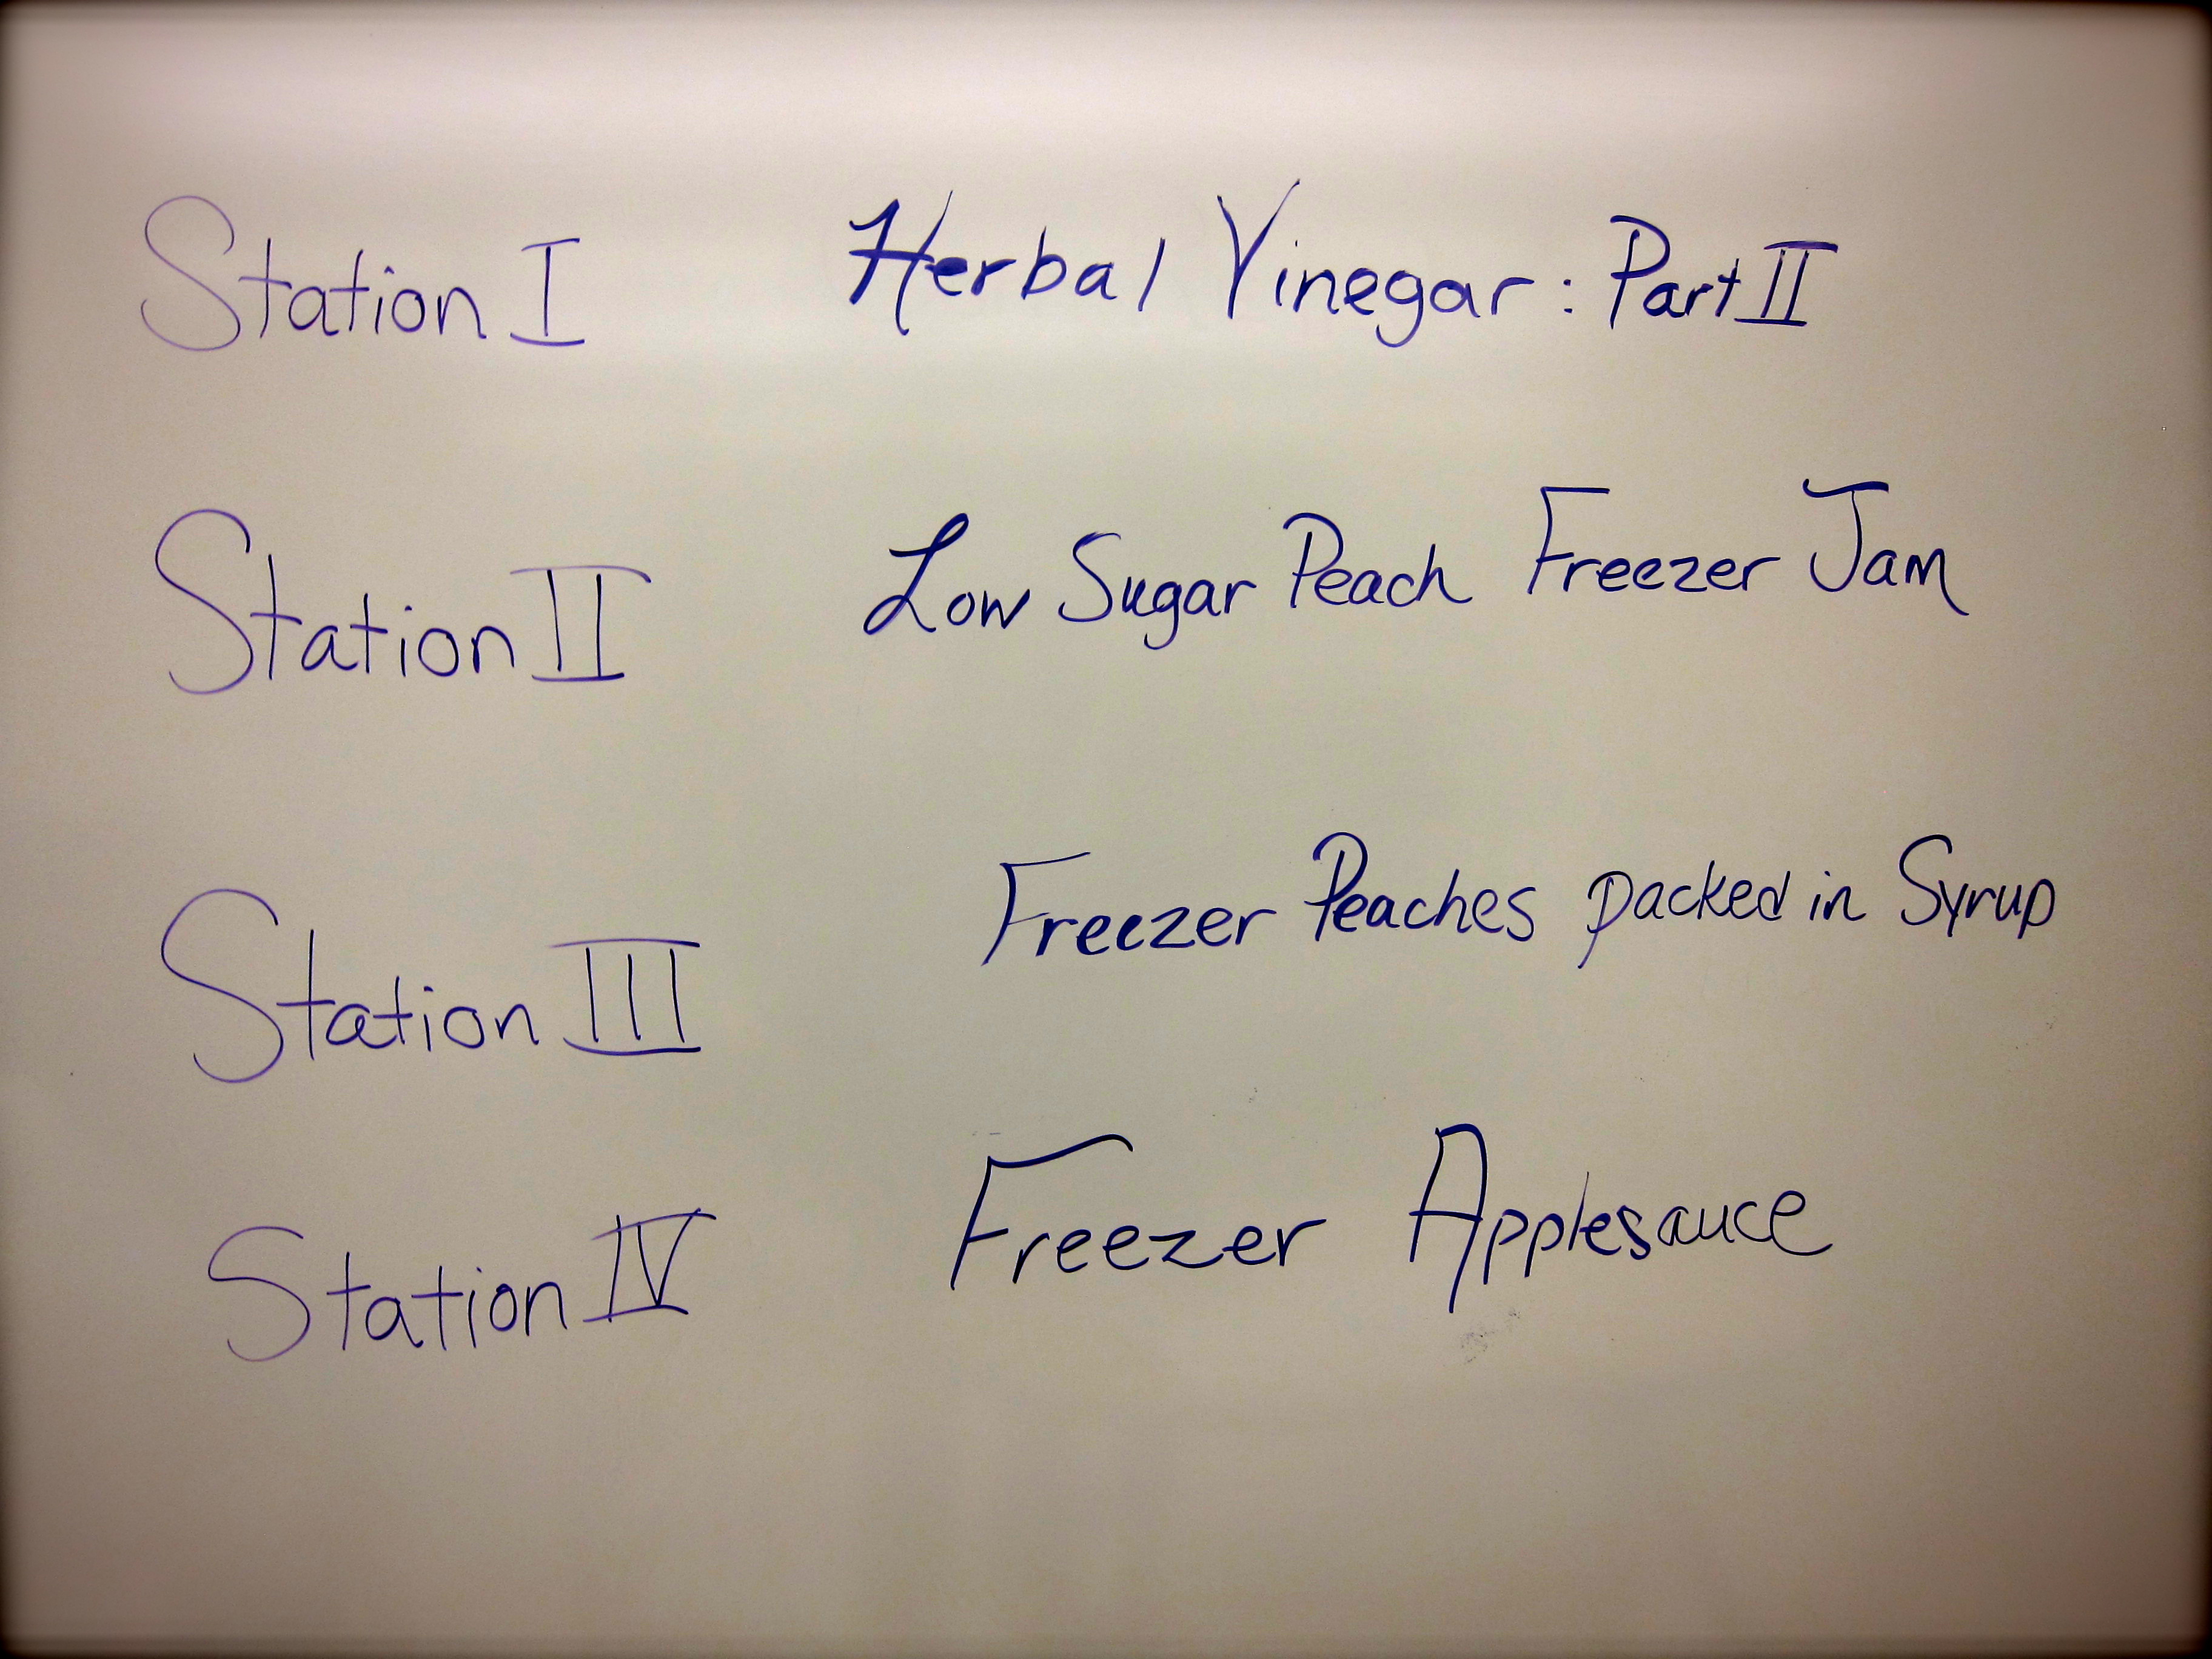 Station I Herbal Vinegar: Part II
Station II Low Sugar Peach Freezer Jam
Station III Freezer Peaches packed in Syrup
Station IV Freezer Applesauce